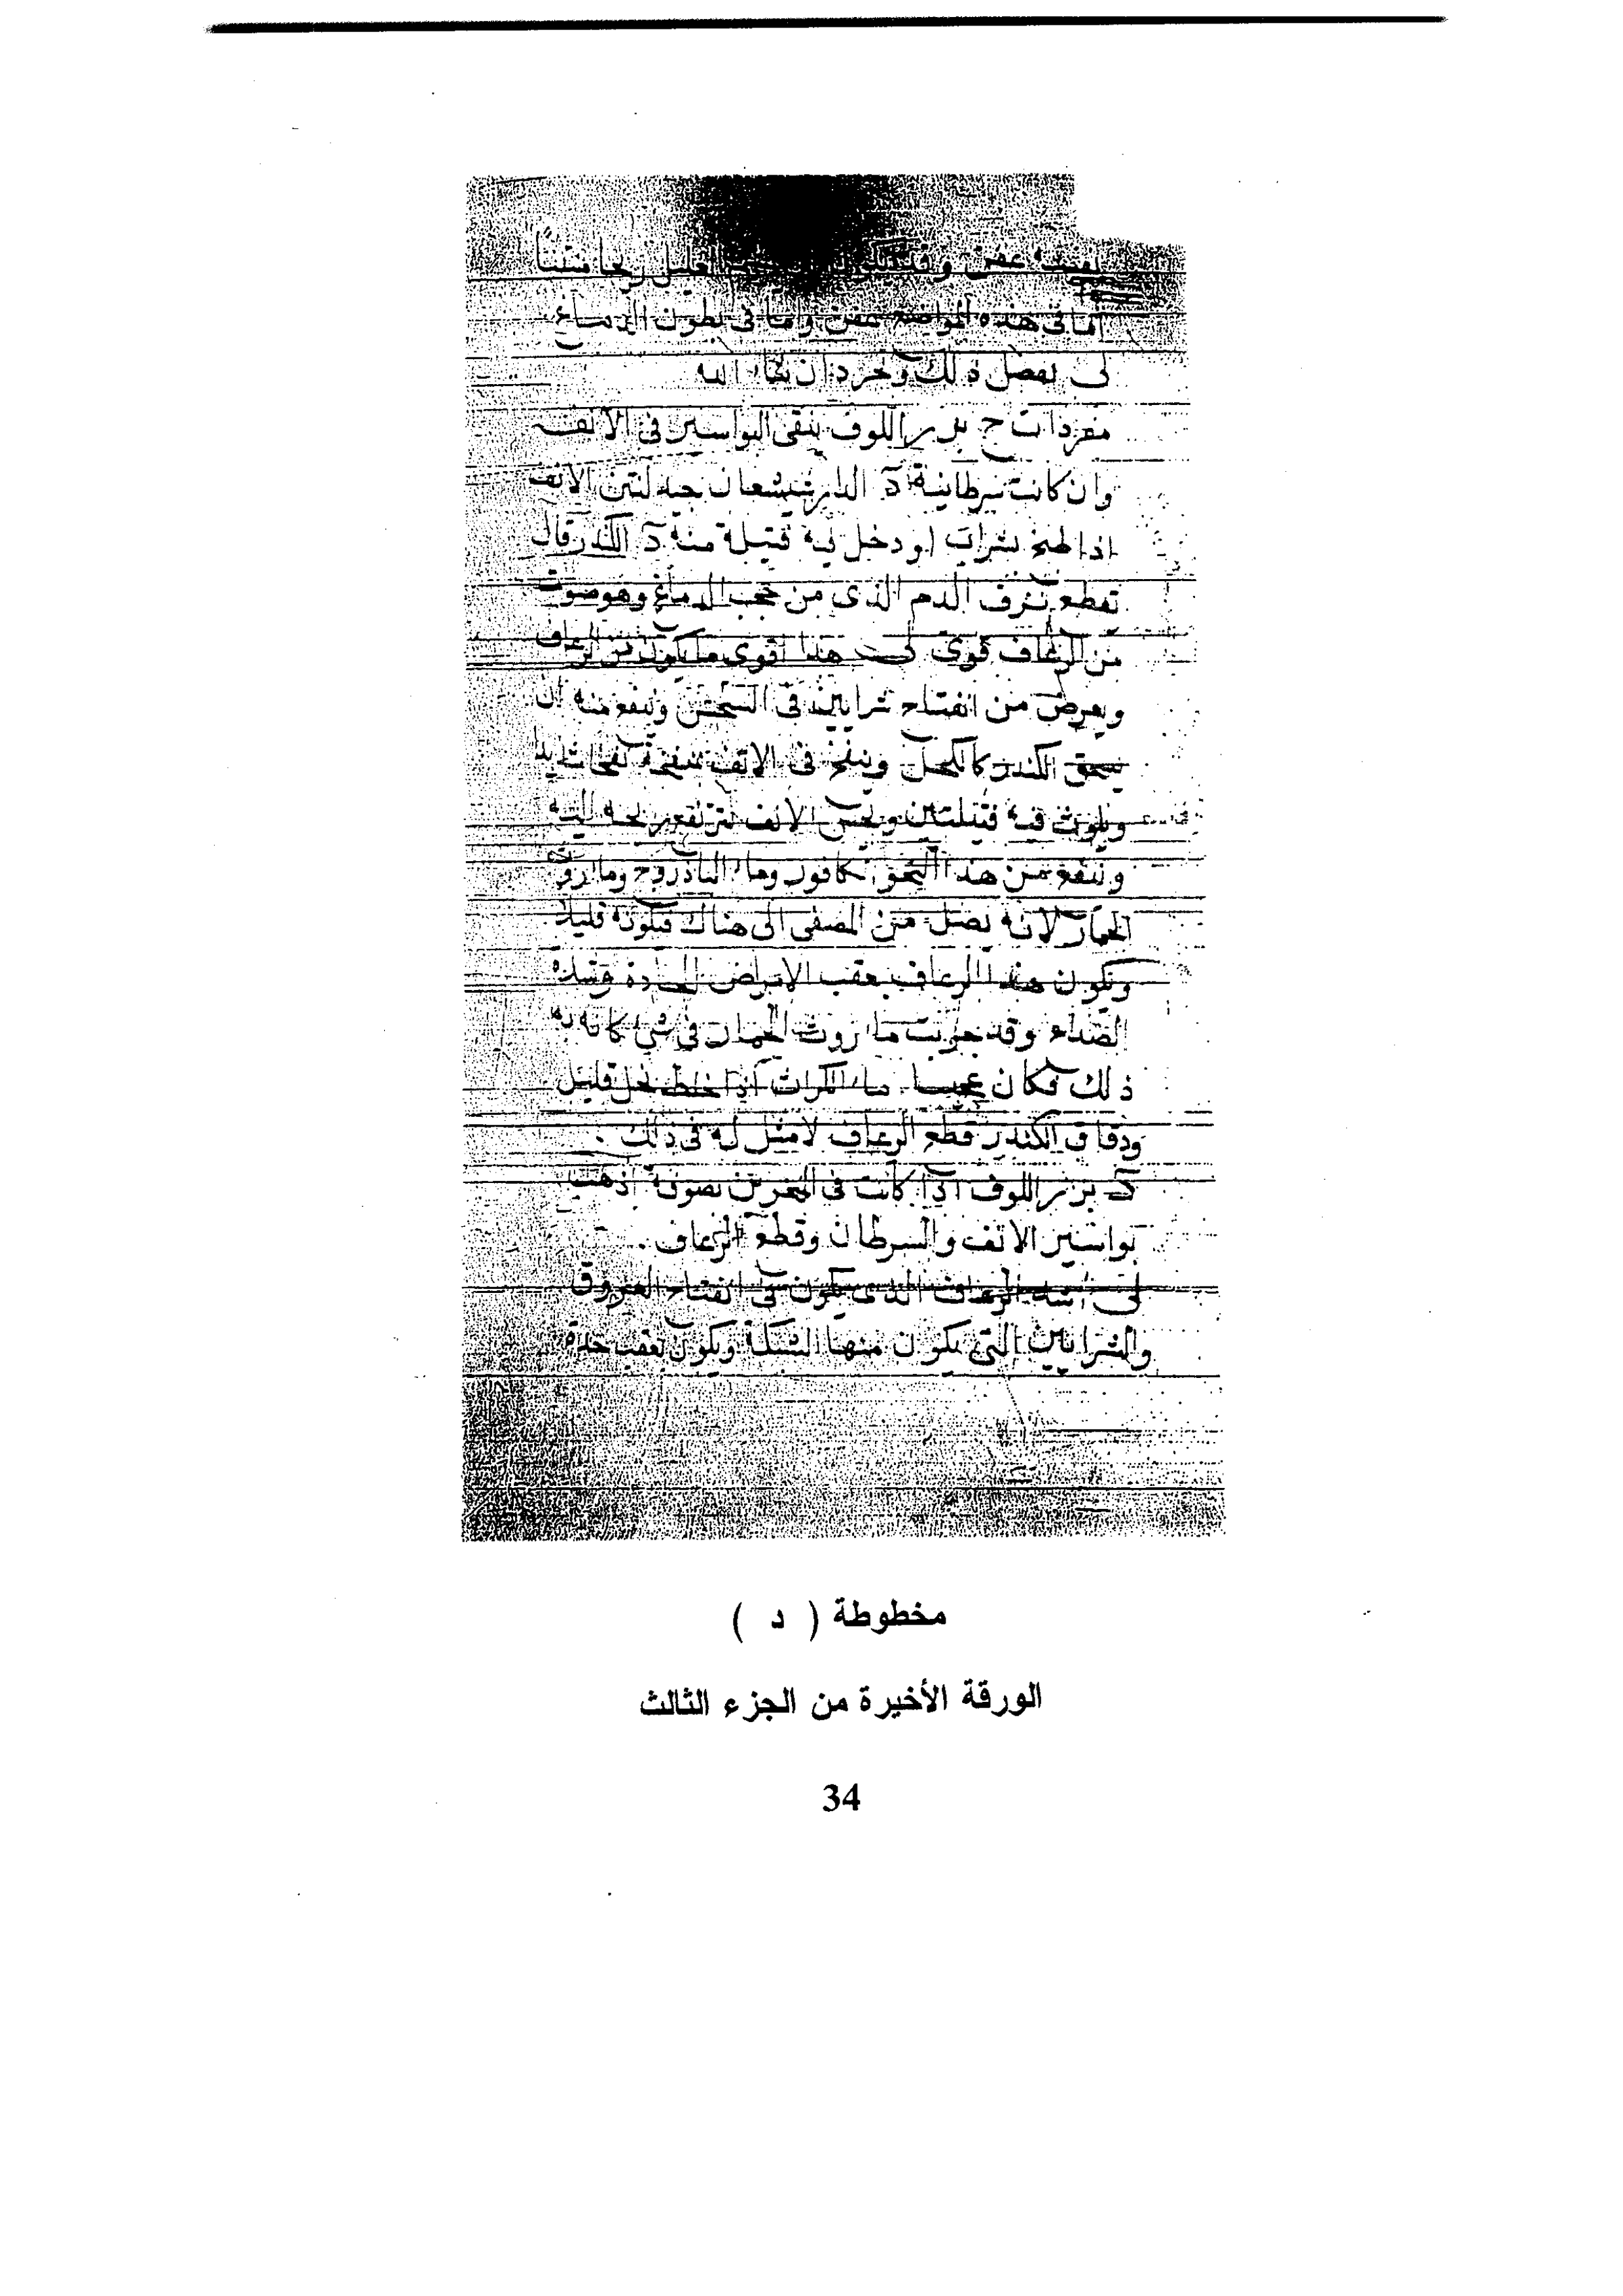 عفن وقد يكون العليل ريحا منتنا
اما فى هذه المواضع عفن واما فى بطون الدماغ
لى يفصل ذلك ويحرر ان شاء الله
مفردات ج بزر اللوف ينقى البواسير فى الانف
وان كانت سرطانية د الدارشيشعان جيد لنتن الانف
اذا طبخ بشراب او دخل فيه فتيلة منه د الكندر قال
تقطع نزف الدم الذى من حجب الدماغ وهو صوت
من الرعاف قوى لى هذا اقوى ما يكون من الرعاف
ويعرض من انفتاح شرايين فى وينفع منه ان
يسحق الكندر كالكحل وينفخ فى الانف نفخا شديدا
ويلوث فيه فتيلتين ويحسى الانف
وينفع من هذا كافور وماء الباذروج وما روث
الحمار لانه يصل من المصفى الى هناك فيكون قليلا
ويكون هذا الرعاف بعقب الامراض الحادة وشدة
الصداع وقد جربت ماء روث الحمار فى شى كانه به
ذلك فكان عجيبا ماء الكراث اذا خلط بخل قليل
ودقاق الكندر قطع الرعاف لا مثل له فى ذلك .
د بزر اللوف اذا كانت فى المنخرين بصوفة اذهبت
بواسير الانف والسرطان وقطع الرعاف .
لى اشد الرعاف الذى يكون من انفتاح العروق
والشرايين التى يكون منها الشبكة ويكون بعقب حدة
مخطوطة ( د )
الورقة الأخيرة من الجزء الثالث
34